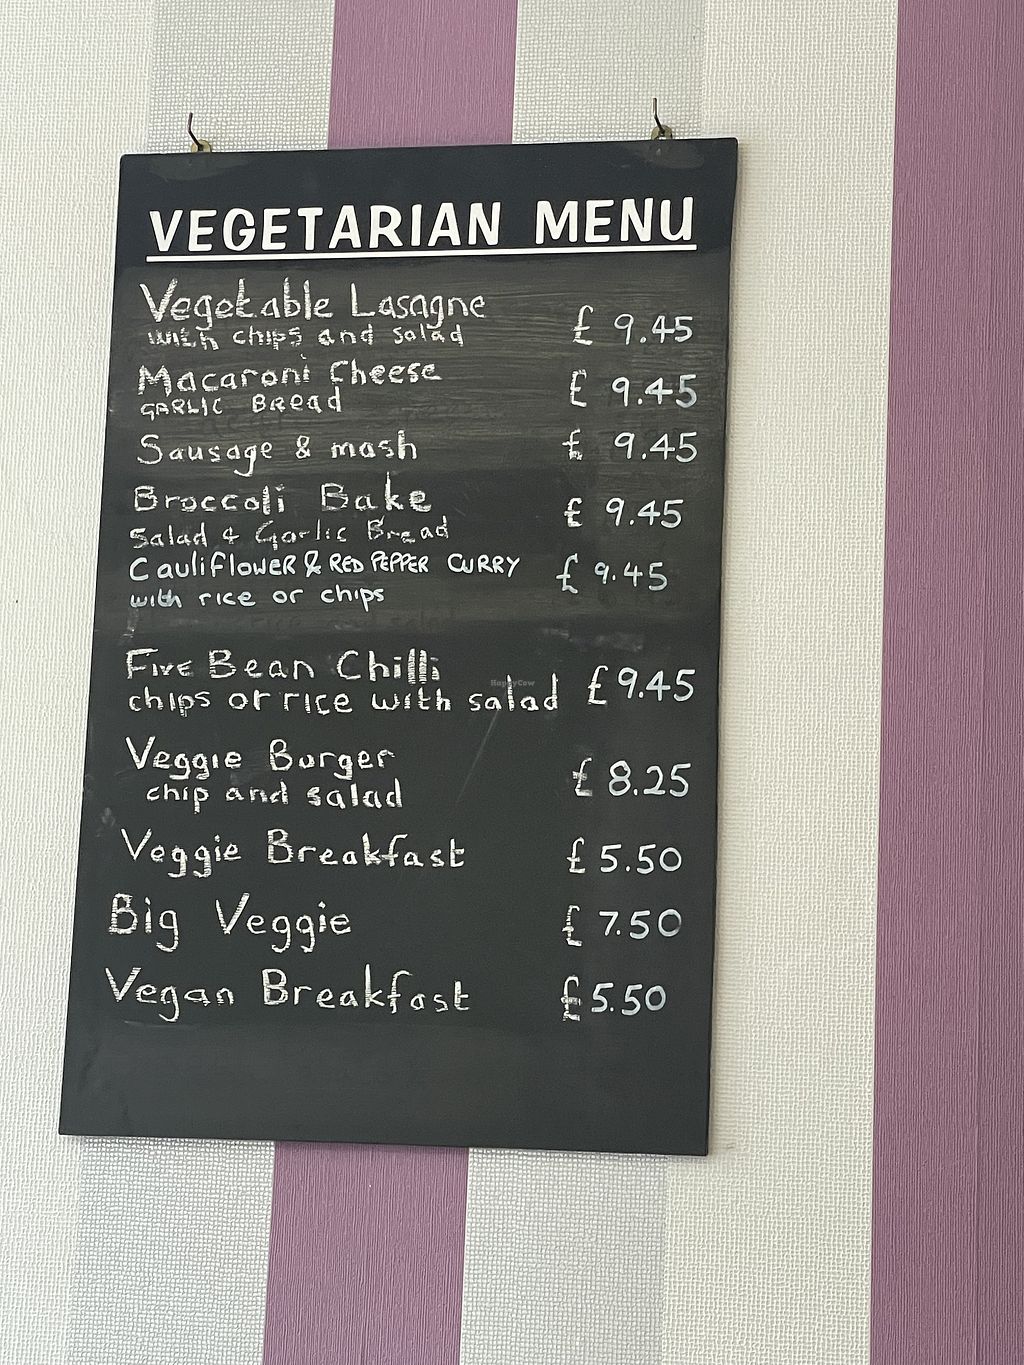 VEGETARIAN MENU
Vegetable Lasagne
with chips and salad £ 9.45
Macaroni Cheese
GARLIC BREad £ 9.45
Sausage & mash £ 9.45
Broccoli Bake
Salad & Garlic Bread £ 9.45
CauliFlowER & RED PEPPER CURRY £ 9.45
with rice or chips
Five Bean Chilli
chips or rice with salad £9.45
Veggie Burger
chip and salad £ 8.25
Veggie Breakfast £ 5.50
Big Veggie £ 7.50
Vegan Breakfast £5.50
HappyCow